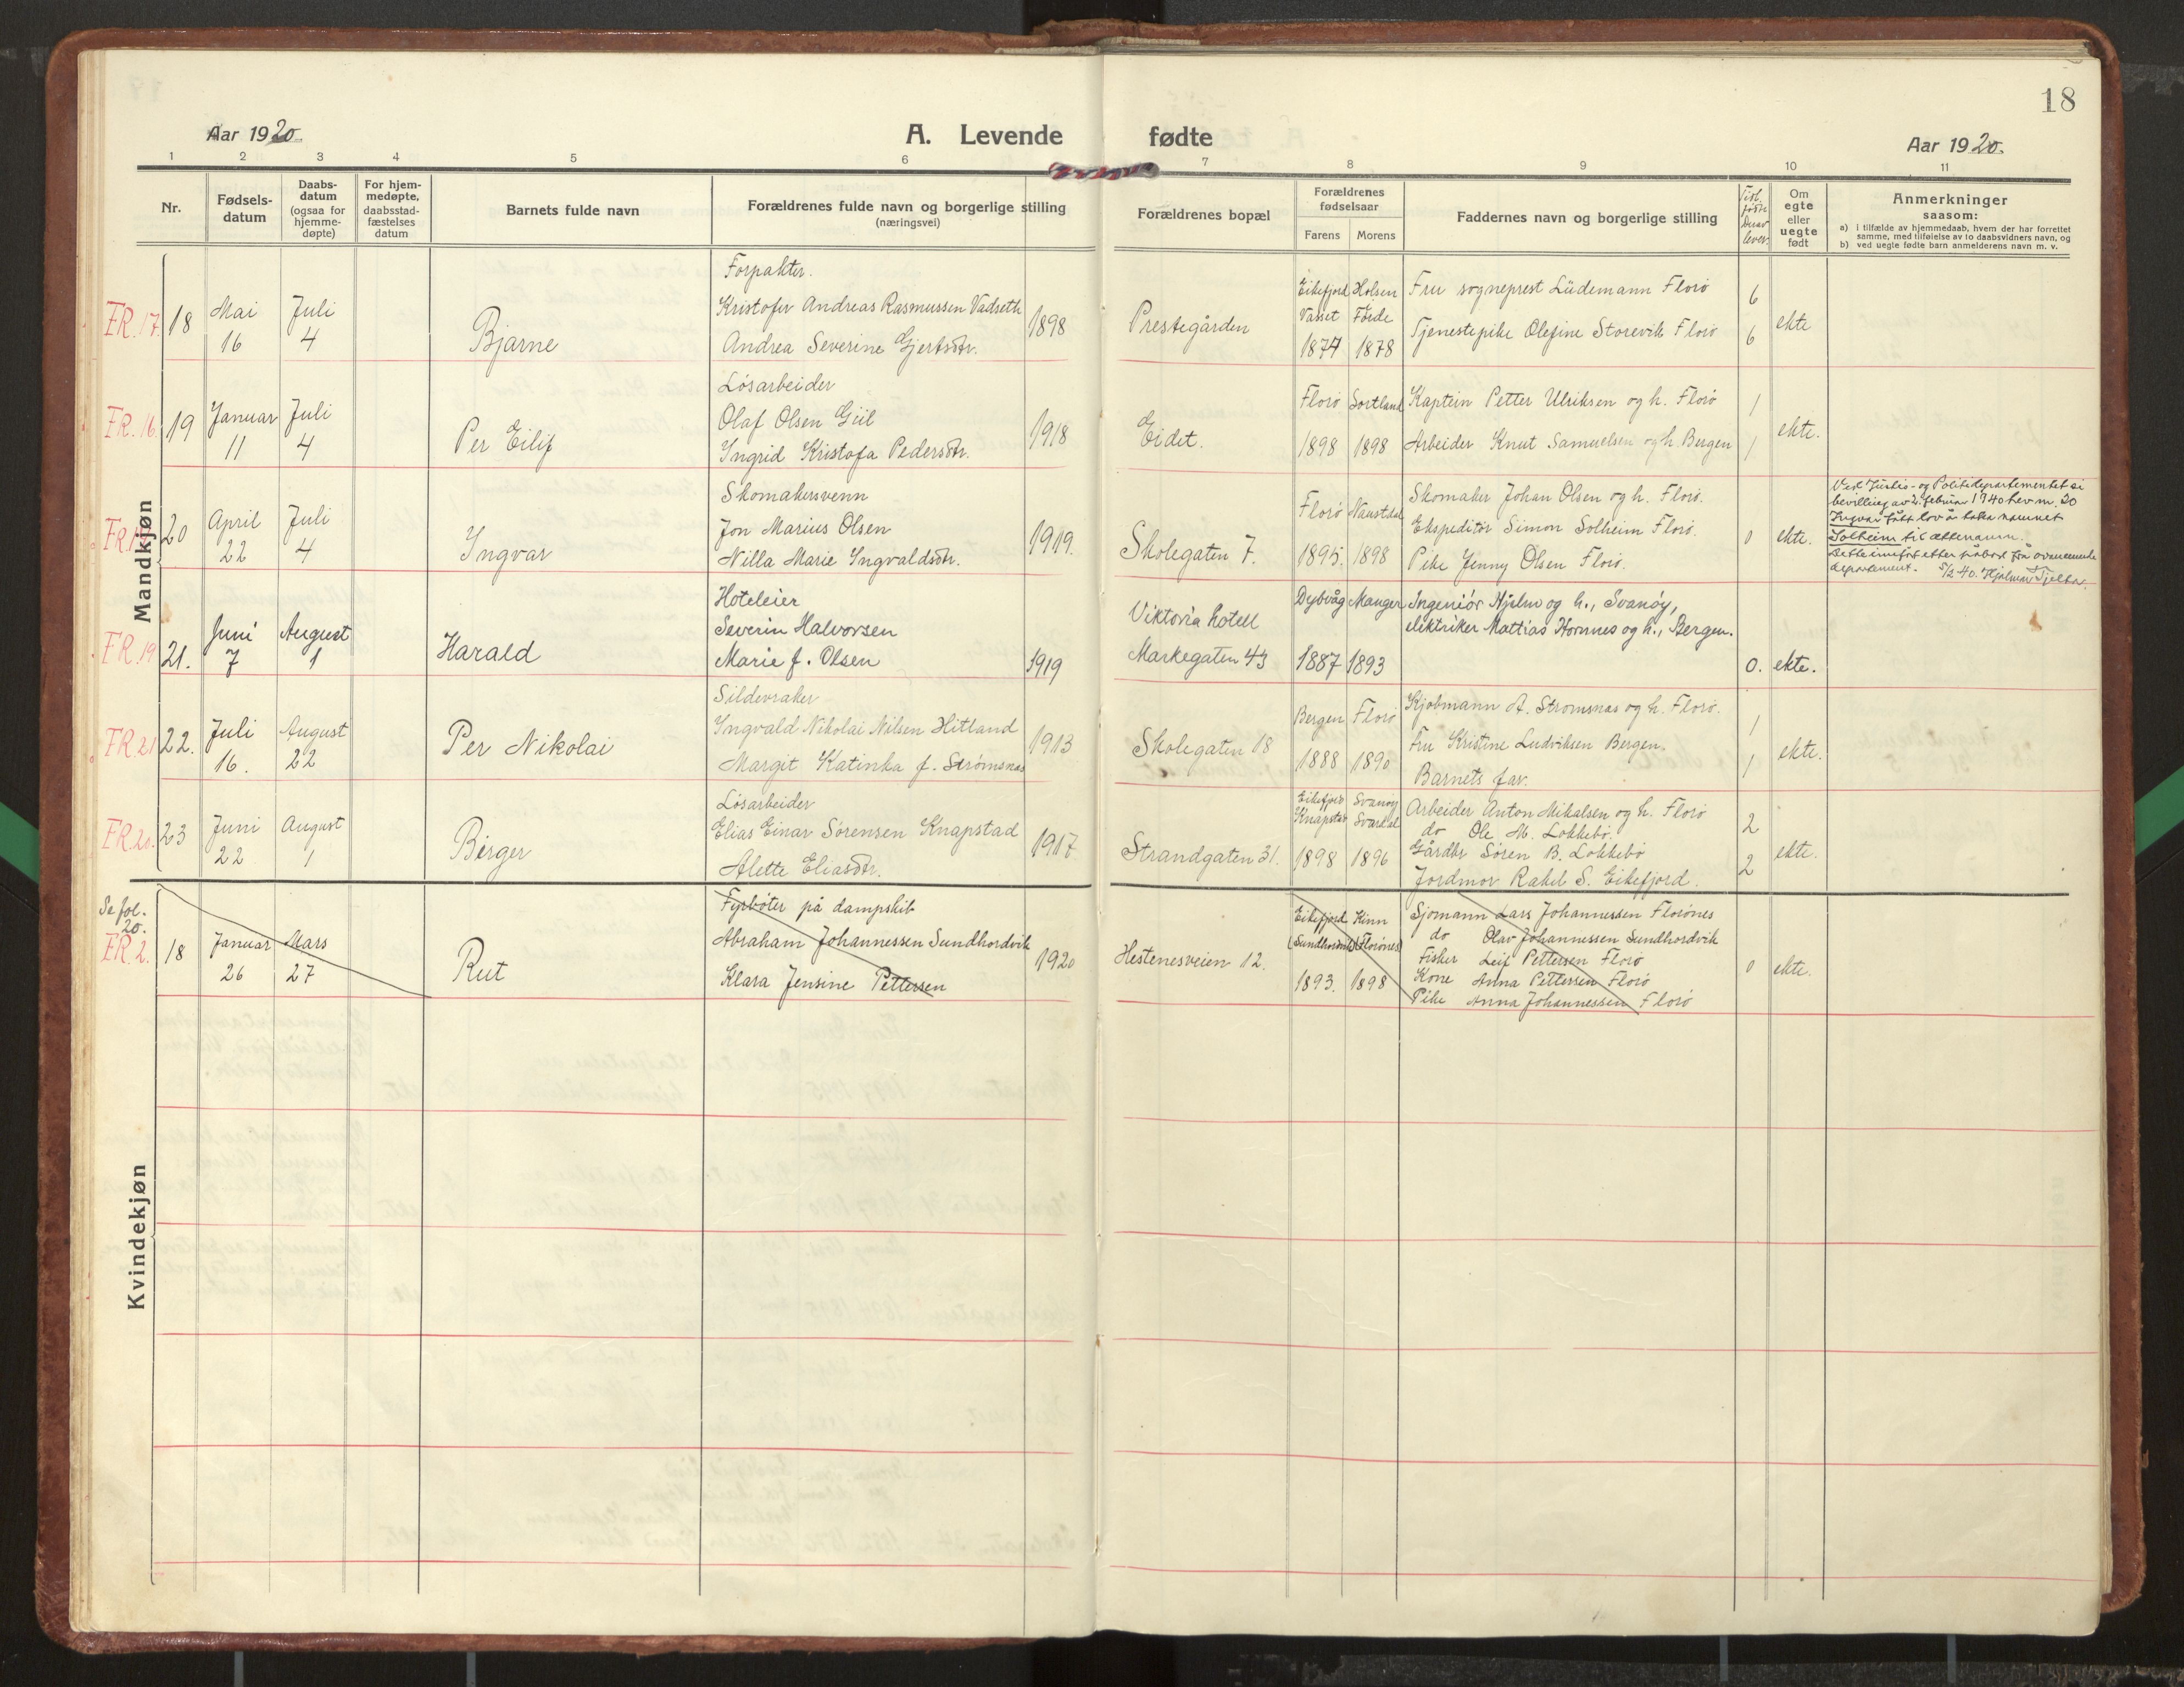 18
Aar 1920.
A. Levende fødte
Aar 1920.
1 2 3 4 5 6 7 8 9 10 11
Nr.
Fødsels-
datum
Daabs-
datum
(ogsaa for
hjemme-
døpte)
For hjem-
medøpte,
daabsstad-
fæstelses
datum
Barnets fulde navn
Forældrenes fulde navn og borgerlige stilling
(næringsvei)
Forældrenes bopæl
Forældrenes
fødselsaar
Farens Morens
Faddernes navn og borgerlige stilling
Tidl.
født
Derav
lever
Om
egte
eller
uegte
født
Anmerkninger
saasom:
a) i tilfælde av hjemmedaab, hvem der har forrettet
samme, med tilføielse av to daabsvidners navn, og
b) ved uegte fødte barn anmelderens navn m. v.
Mandkjøn
FR. 17. 18
Mai
16
Juli
4
Bjarne
Forpakter.
Kristofer Andreas Rasmussen Vadseth
Andrea Severine Gjertsdtr.
1898
Prestegården
Eikefjord
Vasset
1874
Holsen
Førde
1878
Fru sogneprest Lüdemann Florø
Tjenestepike Olefine Storevik Florø
6
6
ekte
FR. 16. 19
Januar
11
Juli
4
Per Eilif
Løsarbeider
Olaf Olsen Giil
Ingrid Kristofa Pedersdtr.
1918
Eidet.
Florø
1898
Sortland
1898
Kaptein Petter Ulriksen og h. Florø
Arbeider Knut Samuelsen og h. Bergen
1
1
ekte.
20
April
22
Juli
4
Ingvar
Skomakersvenn
Jon Marius Olsen
Nilla Marie Ingvaldsdtr.
1919.
Skolegaten 7.
Florø
1895.
Naustdal
1898
Skomaker Johan Olsen og h. Florø.
Ekspeditør Simon Solheim Florø.
Pike Jenny Olsen Florø.
0
ekte.
Ved Justis- og Politidepartementet si
bevilling av 2. februar 1940 hev nr. 20
Ingvar fått lov å taka namnet
Solheim til ættenamn.
Dette innført etter påbod frå ovannemnde
departement. 5/2 40. Hjalmar Tjelta
FR. 19 21.
Juni
7
August
1
Harald
Hoteleier
Severin Halvorsen
Marie f. Olsen
1919
Viktoria hotell
Markegaten 43
Dybvåg
1887
Manger
1893
Ingeniør Hjelm og h., Svanøy,
elektriker Mattias Hornnes og h., Bergen.
0.
ekte.
FR 21 22.
Juli
16.
August
22
Per Nikolai
Sildevraker
Yngvald Nikolai Nilsen Hitland
Margit Katinka f. Strømsnæs
1913
Skolegaten 18
Bergen
1888
Florø
1890
Kjøbmann A. Stromsnas og h. Florø.
Fru Kristine Ludviksen Bergen.
Barnets far.
1
1
ekte.
FR. 20. 23
Juni
22
August
1
Birger
Løsarbeider
Elias Einar Sørensen Knapstad
Alette Eliasdtr.
1917
Strandgaten 31.
Eikefjord
Knapstad
1898
Svanøy
1896
Arbeider Anton Mikalsen og h. Florø
do Ole M. Løkkebø.
Gårdbr Søren B. Løkkebø
Jordmor Rakel S. Eikefjord.
2
2
ekte.
Kvindekjøn
Se fol.
20.
FR. 2. 18
Januar
26
Mars
27
Rut
Fyrbøter på dampskib
Abraham Johannessen Sundhordvik
Klara Jensine Pettersen
1920
Hestenesveien 12.
Eikefjord
(Sundhordvik)
1893.
Kinn
(Florønes)
1898
Sjømann Lars Johannessen Florønes
do Olav Johannessen Sundhordvik
Fisker Leif Pettersen Florø
Kone Anna Pettersen Florø
Pike Anna Johannessen Florø
0
ekte.